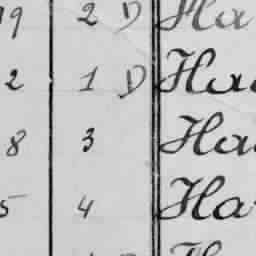 19 2 D Ha
2 1 D Ha
8 3 Ha
5 4 Ha